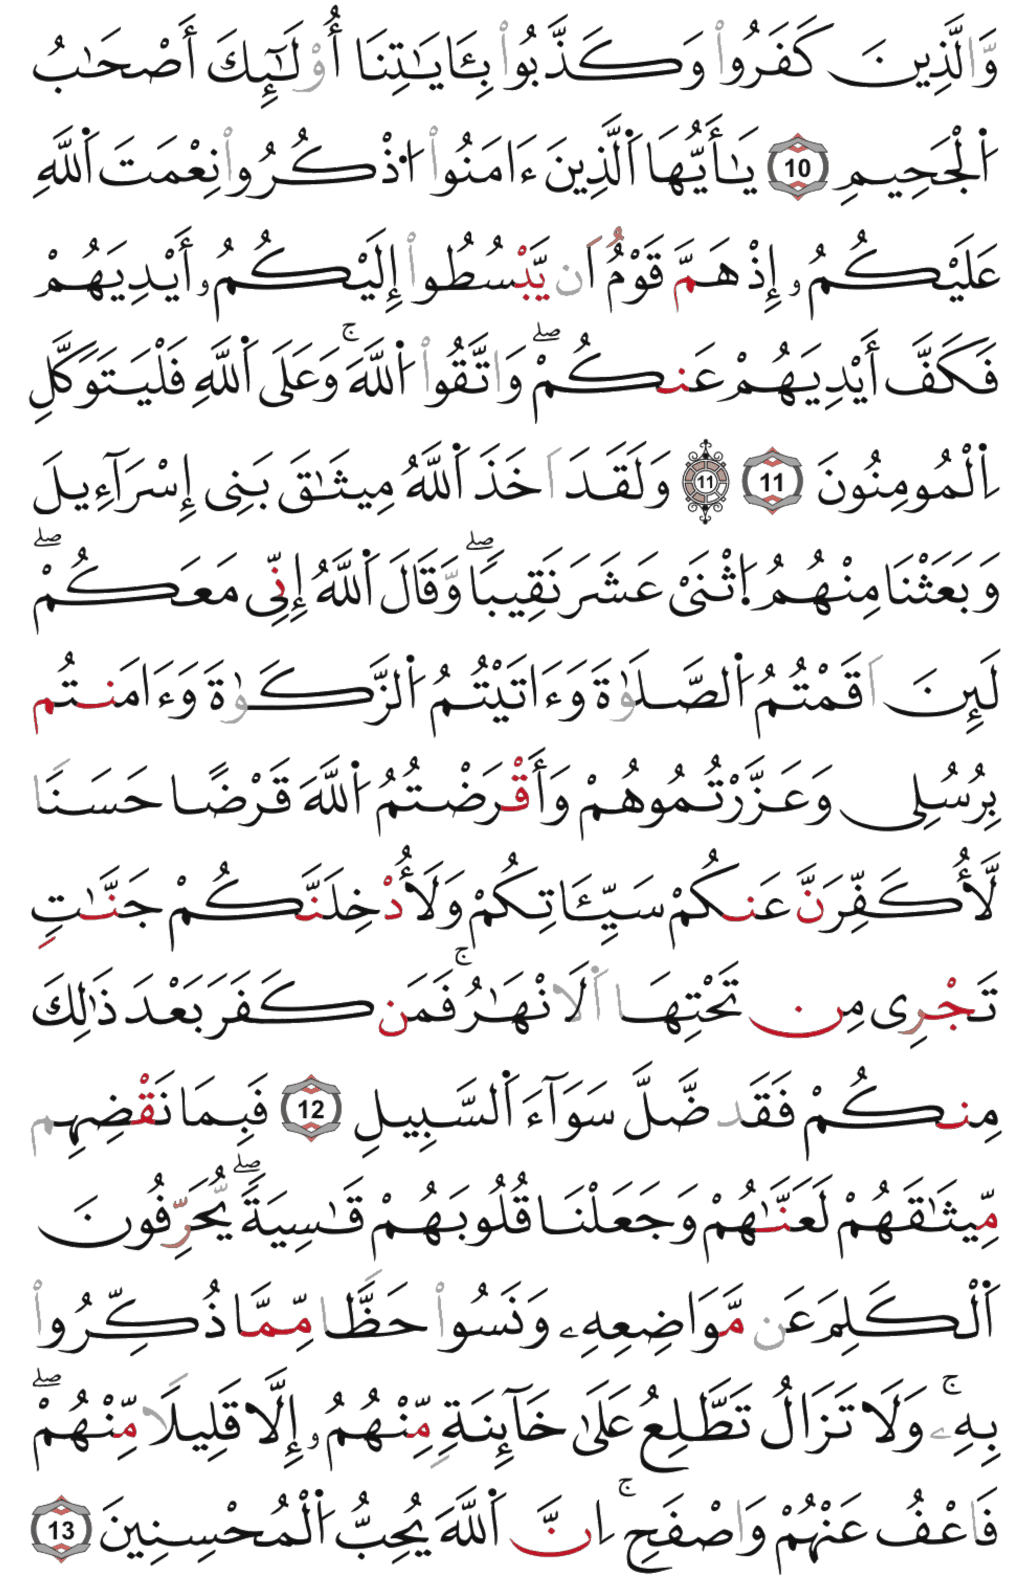 وَّالَّذِينَ كَفَرُواْ وَكَذَّبُواْ بِـَٔايَـٰتِنَا أُوْلَـٰٓئِكَ أَصْحَـٰبُ
اَ۬لْجَحِيمِ 10 يَـٰٓأَيُّهَا اَ۬لَّذِينَ ءَامَنُواْ اُ۟ذْكُرُواْ نِعْمَتَ اَ۬للَّهِ
عَلَيْكُمُۥ إِذْ هَمَّ قَوْمٌ اَن يَّبْسُطُواْ إِلَيْكُمُۥ أَيْدِيَهُمْ
فَكَفَّ أَيْدِيَهُمْ عَنكُمْۖ وَاتَّقُواْ اُ۬للَّهَۚ وَعَلَى اَ۬للَّهِ فَلْيَتَوَكَّلِ
اِ۬لْمُومِنُونَ 11 11 وَلَقَدَ اَخَذَ اَ۬للَّهُ مِيثَـٰقَ بَنِى إِسْرَآءِيلَ
وَبَعَثْنَا مِنْهُمُ اُ۪ثْنَىْ عَشَرَ نَقِيبًاۖ وَّقَالَ اَ۬للَّهُ إِنِّى مَعَكُمْۖ
لَئِنَ اَقَمْتُمُ اُ۬لصَّلَوٰةَ وَءَاتَيْتُمُ اُ۬لزَّكَوٰةَ وَءَامَنتُم
بِرُسُلِى وَعَزَّرْتُمُوهُمْ وَأَقْرَضْتُمُ اُ۬للَّهَ قَرْضًا حَسَنًا
لَّأُكَفِّرَنَّ عَنكُمْ سَيِّـَٔاتِكُمْ وَلَأُدْخِلَنَّكُمْ جَنَّـٰتٍ
تَجْرِى مِن تَحْتِهَا اَ۬لَانْهَـٰرُۚ فَمَن كَفَرَ بَعْدَ ذَٰلِكَ
مِنكُمْ فَقَد ضَّلَّ سَوَآءَ اَ۬لسَّبِيلِ 12 فَبِمَا نَقْضِهِم
مِّيثَـٰقَهُمْ لَعَنَّـٰهُمْ وَجَعَلْنَا قُلُوبَهُمْ قَـٰسِيَةًۖ يُّحَرِّفُونَ
اَ۬لْكَلِمَ عَن مَّوَاضِعِهِۦ وَنَسُواْ حَظًّا مِّمَّا ذُكِّرُواْ
بِهِۦۚ وَلَا تَزَالُ تَطَّلِعُ عَلَىٰ خَآئِنَةٍ مِّنْهُمُۥ إِلَّا قَلِيلًا مِّنْهُمْۖ
فَاعْفُ عَنْهُمْ وَاصْفَحِۚ اِنَّ اَ۬للَّهَ يُحِبُّ اُ۬لْمُحْسِنِينَ 13